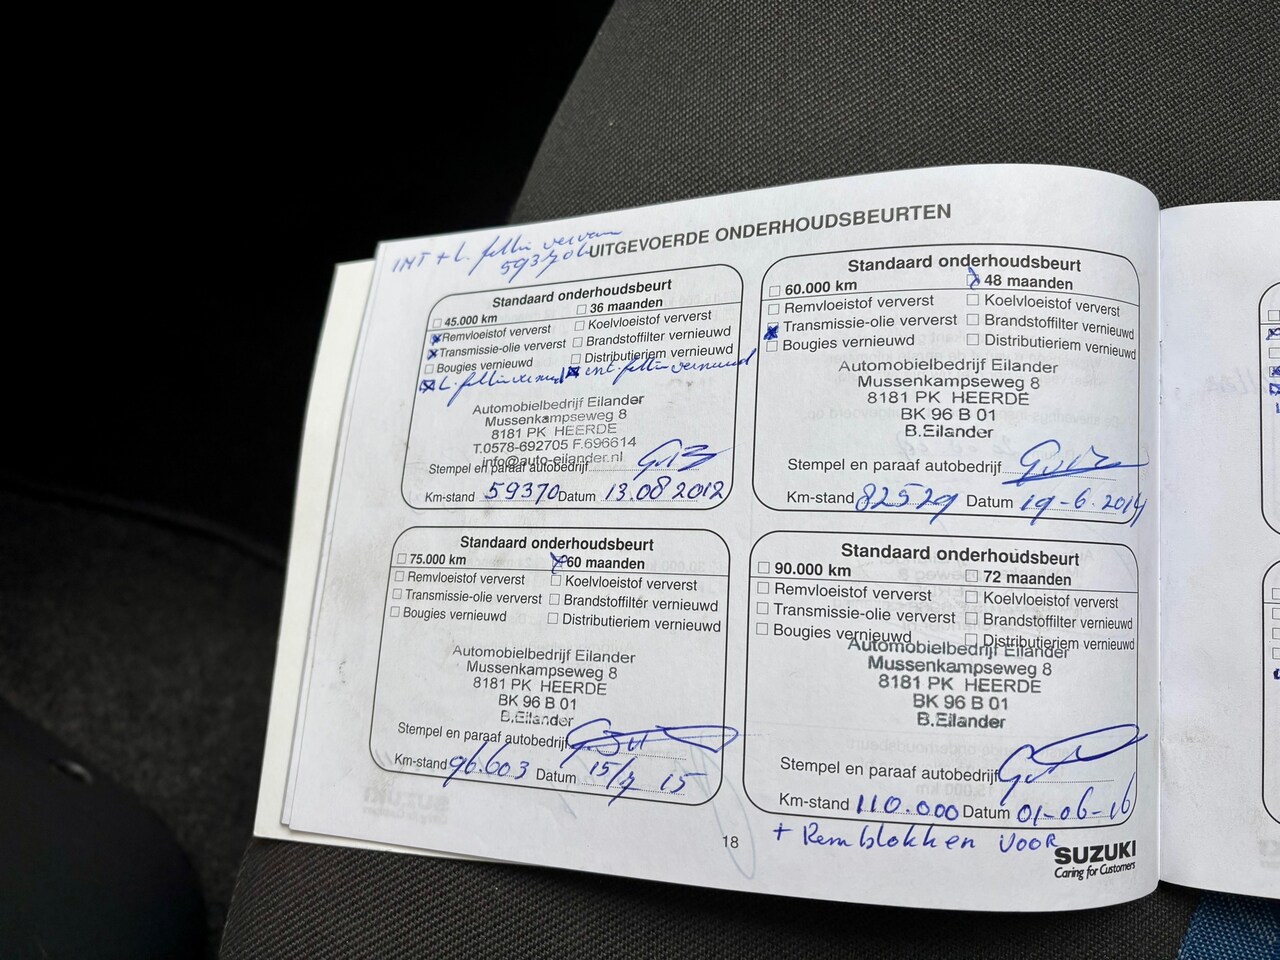 UITGEVOERDE ONDERHOUDSBEURTEN
INT + L. filter
59370
Standaard onderhoudsbeurt
45.000 km 36 maanden
Remvloeistof ververst Koelvloeistof ververst
Transmissie-olie ververst Brandstoffilter vernieuwd
Bougies vernieuwd Distributieriem vernieuwd
L. filter vernieuwd int. filter vernieuwd
Automobielbedrijf Eilander
Mussenkampseweg 8
8181 PK HEERDE
T.0578-692705 F.696614
info@auto-eilander.nl
Stempel en paraaf autobedrijf
Km-stand 59370 Datum 13.08 2012
Standaard onderhoudsbeurt
60.000 km 48 maanden
Remvloeistof ververst Koelvloeistof ververst
Transmissie-olie ververst Brandstoffilter vernieuwd
Bougies vernieuwd Distributieriem vernieuwd
Automobielbedrijf Eilander
Mussenkampseweg 8
8181 PK HEERDE
BK 96 B 01
B.Eilander
Stempel en paraaf autobedrijf
Km-stand 82529 Datum 19-6.2014
Standaard onderhoudsbeurt
75.000 km 60 maanden
Remvloeistof ververst Koelvloeistof ververst
Transmissie-olie ververst Brandstoffilter vernieuwd
Bougies vernieuwd Distributieriem vernieuwd
Automobielbedrijf Eilander
Mussenkampseweg 8
8181 PK HEERDE
BK 96 B 01
B.Eilander
Stempel en paraaf autobedrijf
Km-stand 96.603 Datum 15/7 15
Standaard onderhoudsbeurt
90.000 km 72 maanden
Remvloeistof ververst Koelvloeistof ververst
Transmissie-olie ververst Brandstoffilter vernieuwd
Bougies vernieuwd Distributieriem vernieuwd
Automobielbedrijf Eilander
Mussenkampseweg 8
8181 PK HEERDE
BK 96 B 01
B.Eilander
Stempel en paraaf autobedrijf
Km-stand 110.000 Datum 01-06-16
+ Remblokken VOOR
18
SUZUKI
Caring for Customers